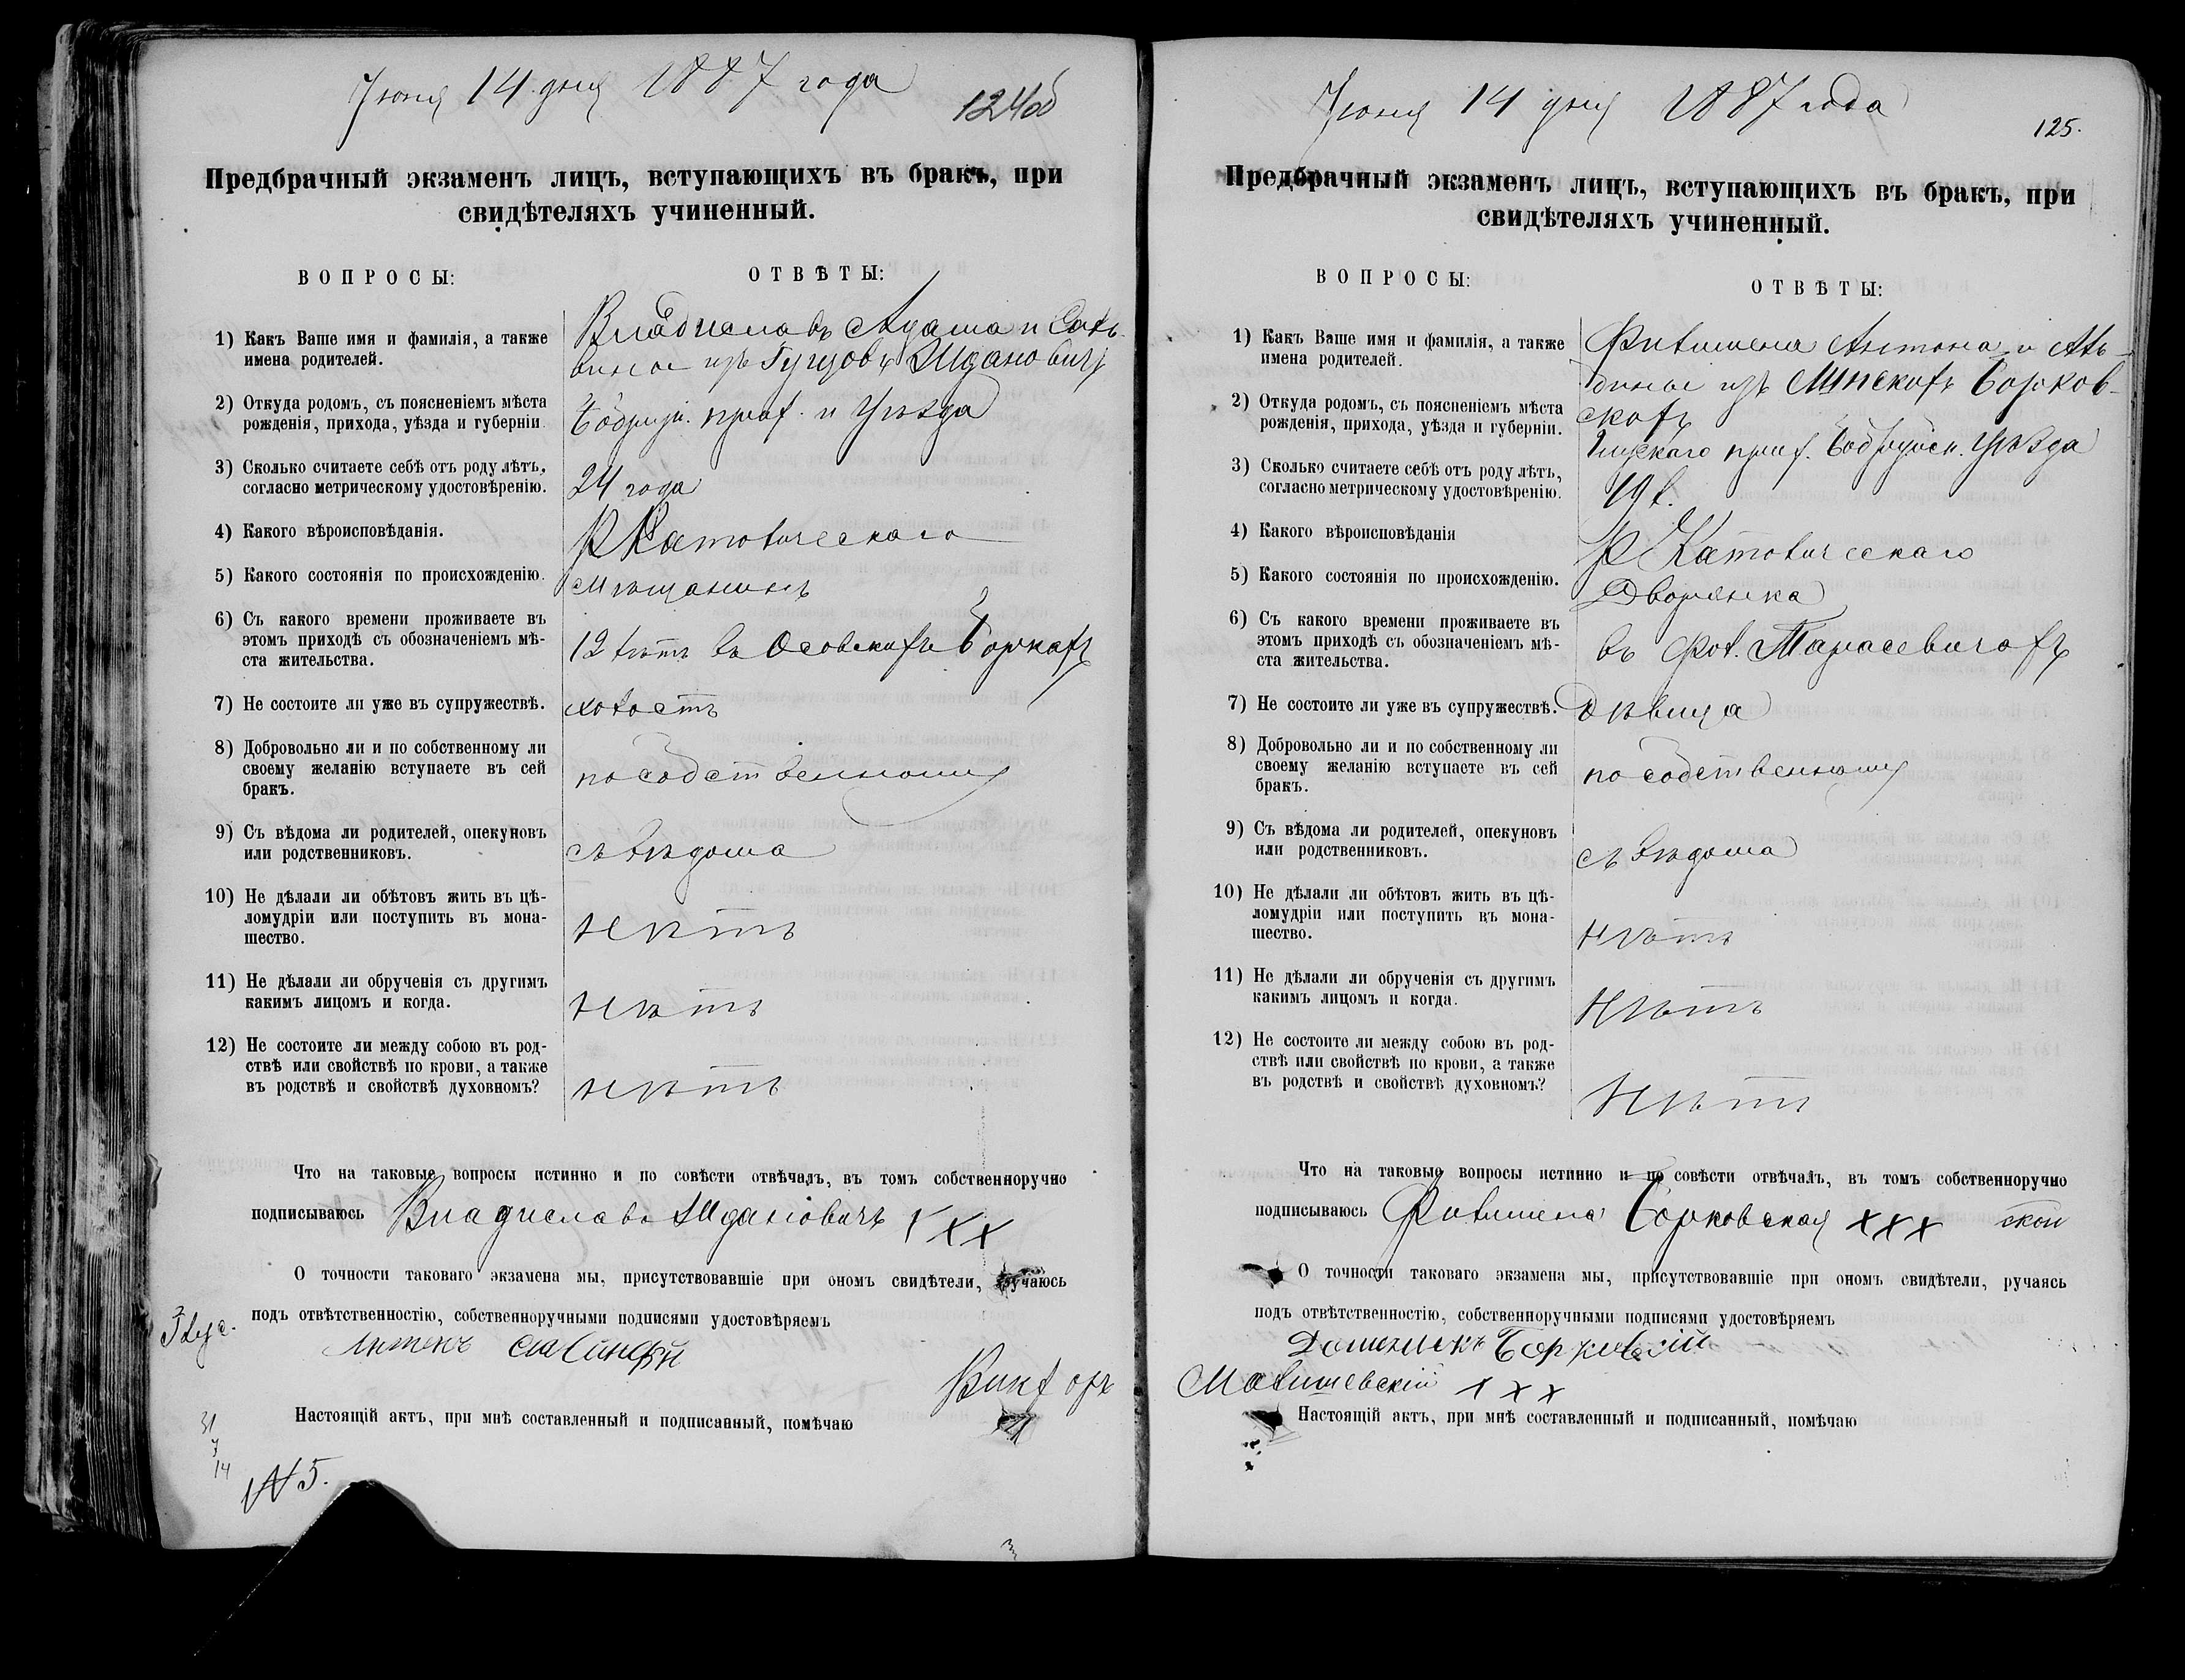 Июня 14 дня 1887 года
124 об
Предбрачный экзаменъ лицъ, вступающихъ въ бракъ, при
свидѣтеляхъ учиненный.
ВОПРОСЫ:
ОТВѢТЫ:
1) Какъ Ваше имя и фамилія, а также
имена родителей.
Владиславъ Адама и
изъ Ждановичъ
2) Откуда родомъ, съ поясненіемъ мѣста
рожденія, прихода, уѣзда и губерніи.
Бобруй. прих. и Уѣзда
3) Сколько считаете себѣ отъ роду лѣтъ,
согласно метрическому удостовѣренію.
24 года
4) Какого вѣроисповѣданія.
Р Католическаго
5) Какого состоянія по происхожденію.
Мѣщанинъ
6) Съ какого времени проживаете въ
этомъ приходѣ съ обозначеніемъ мѣ-
ста жительства.
12 лѣтъ въ Осовскихъ Боркахъ
7) Не состоите ли уже въ супружествѣ.
холостъ
8) Добровольно ли и по собственному ли
своему желанію вступаете въ сей
бракъ.
по собственному
9) Съ вѣдома ли родителей, опекуновъ
или родственниковъ.
съ вѣдома
10) Не дѣлали ли обѣтовъ жить въ цѣ-
ломудріи или поступить въ мона-
шество.
нѣтъ
11) Не дѣлали ли обрученія съ другимъ
какимъ лицомъ и когда.
нѣтъ
12) Не состоите ли между собою въ род-
ствѣ или свойствѣ по крови, а также
въ родствѣ и свойствѣ духовномъ?
нѣтъ
Что на таковые вопросы истинно и по совѣсти отвѣчалъ, въ томъ собственноручно
подписываюсь Владиславъ Ждановичъ XXX
О точности таковаго экзамена мы, присутствовавшіе при ономъ свидѣтели, ручаюсь
подъ отвѣтственностію, собственноручными подписями удостовѣряемъ
Антонъ
Викторъ
Настоящій актъ, при мнѣ составленный и подписанный, помѣчаю
31
7
14
№ 5.
Июня 14 дня 1887 года
125.
Предбрачный экзаменъ лицъ, вступающихъ въ бракъ, при
свидѣтеляхъ учиненный.
ВОПРОСЫ:
ОТВѢТЫ:
1) Какъ Ваше имя и фамилія, а также
имена родителей.
Филимена Антона и Аль-
бины изъ Минскихъ Борков-
скихъ
2) Откуда родомъ, съ поясненіемъ мѣста
рожденія, прихода, уѣзда и губерніи.
Глускаго прих. Бобруйск. Уѣзда
3) Сколько считаете себѣ отъ роду лѣтъ,
согласно метрическому удостовѣренію.
19 л.
4) Какого вѣроисповѣданія
Р Католическаго
5) Какого состоянія по происхожденію.
Дворянка
6) Съ какого времени проживаете въ
этомъ приходѣ съ обозначеніемъ мѣ-
ста жительства.
въ Фол. Тарасевичахъ
7) Не состоите ли уже въ супружествѣ.
Дѣвица
8) Добровольно ли и по собственному ли
своему желанію вступаете въ сей
бракъ.
по собственному
9) Съ вѣдома ли родителей, опекуновъ
или родственниковъ.
съ вѣдома
10) Не дѣлали ли обѣтовъ жить въ цѣ-
ломудріи или поступить въ мона-
шество.
нѣтъ
11) Не дѣлали ли обрученія съ другимъ
какимъ лицомъ и когда.
нѣтъ
12) Не состоите ли между собою въ род-
ствѣ или свойствѣ по крови, а также
въ родствѣ и свойствѣ духовномъ?
Нѣтъ
Что на таковые вопросы истинно и по совѣсти отвѣчалъ, въ томъ собственноручно
подписываюсь Филимена Борковская XXX
О точности таковаго экзамена мы, присутствовавшіе при ономъ свидѣтели, ручаясь
подъ отвѣтственностію, собственноручными подписями удостовѣряемъ
Доминикъ Борковскій
Малишевскій XXX
Настоящій актъ, при мнѣ составленный и подписанный, помѣчаю